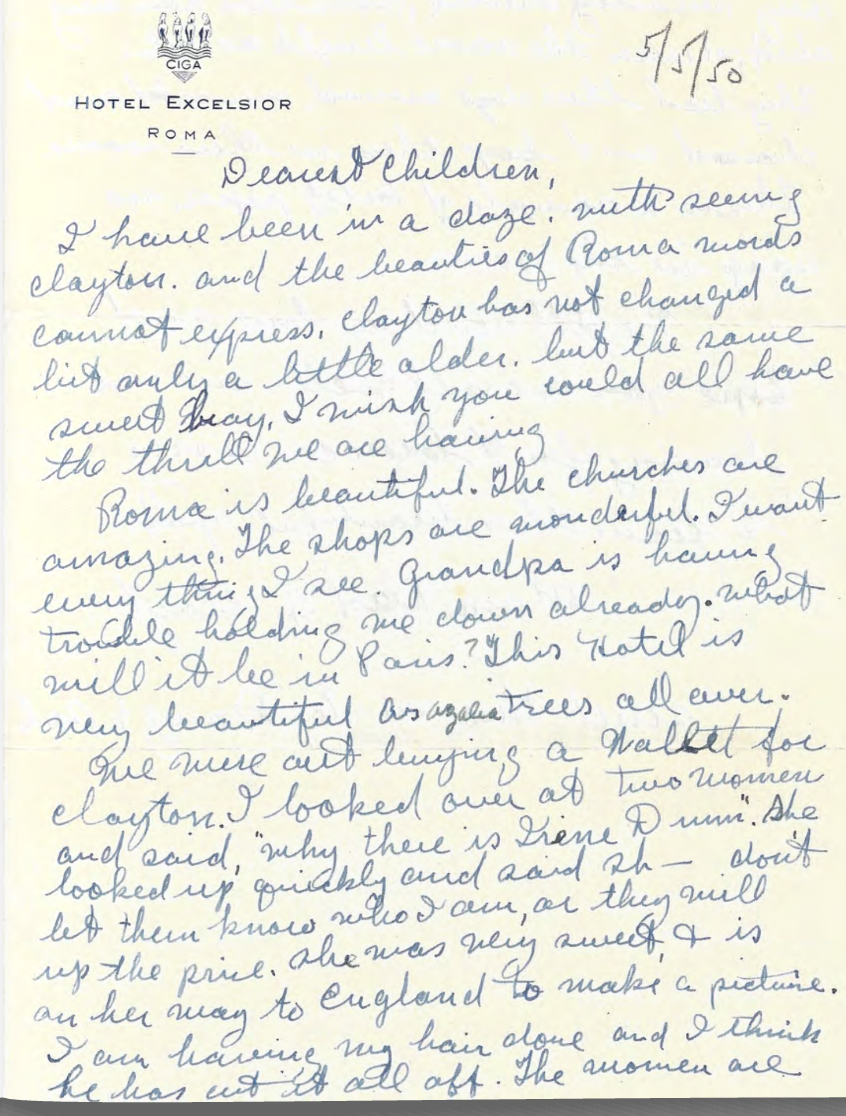 CIGA
HOTEL EXCELSIOR
ROMA
5/5/50
Dearest Children,
I have been in a daze. with seeing
Clayton. and the beauties of Roma words
cannot express. Clayton has not changed a
bit only a little older. but the same
sweet boy. I wish you could all have
the thrill we are having
Roma is beautiful. The churches are
amazing. The shops are wonderful. I want
every thing I see. Grandpa is having
trouble holding me down already. what
will it be in Paris? This Hotel is
very beautiful azalea Trees all over.
We were out buying a Wallet for
Clayton. I looked over at two women
and said, "why there is Irene Dunn". She
looked up quickly and said sh— don't
let them know who I am, or they will
up the price. She was very sweet, & is
on her way to England to make a picture.
I am having my hair done and I think
he has cut it all off. The women are